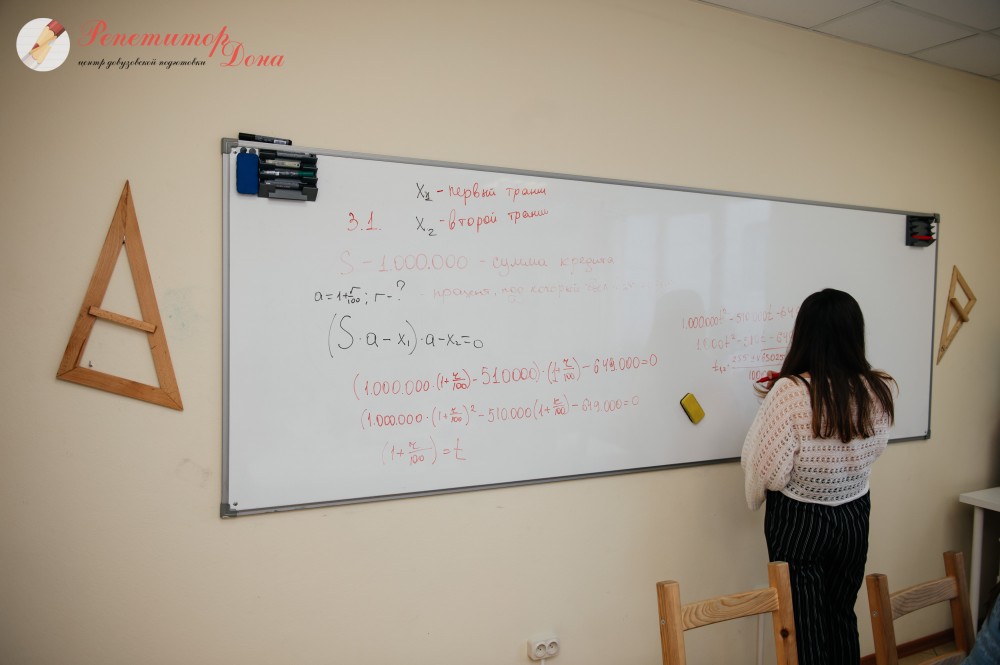 Репетитор Дона
центр довузовской подготовки
x₁ - первый транш
3.1. x₂ - второй транш
S - 1.000.000 - сумма кредита
a = 1+r/100; r - ? - процент, под который
(S·a - x₁)·a - x₂ = 0
(1.000.000·(1+r/100) - 510.000)·(1+r/100) - 649.000 = 0
(1.000.000·(1+r/100)² - 510.000(1+r/100) - 649.000 = 0
(1+r/100) = t
1.000.000t² - 510.000t - 64
1000t²